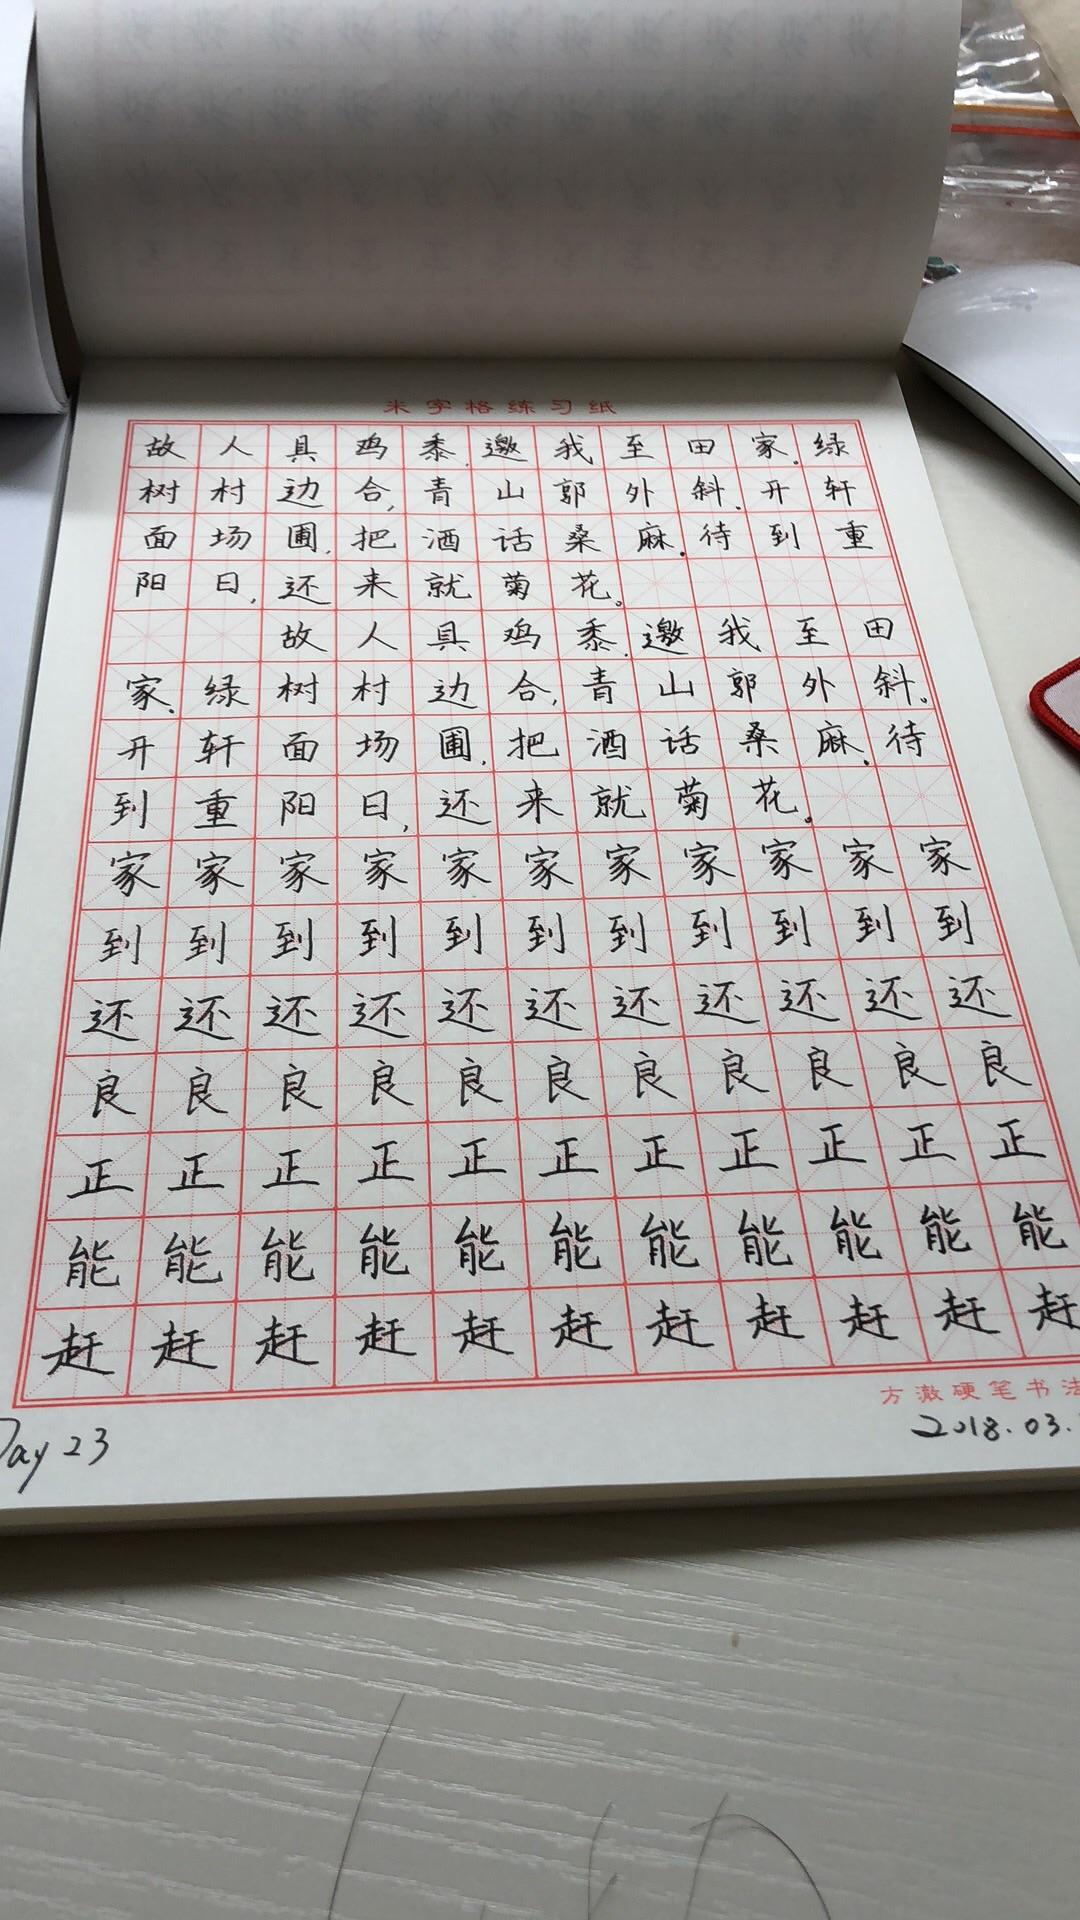 米字格练习纸
故人具鸡黍,邀我至田家.绿
树村边合,青山郭外斜.开轩
面场圃,把酒话桑麻.待到重
阳日,还来就菊花。
故人具鸡黍,邀我至田
家.绿树村边合,青山郭外斜。
开轩面场圃,把酒话桑麻.待
到重阳日,还来就菊花。
家家家家家家家家家家家
到到到到到到到到到到到
还还还还还还还还还还还
良良良良良良良良良良良
正正正正正正正正正正正
能能能能能能能能能能能
赶赶赶赶赶赶赶赶赶赶赶
方澈硬笔书法
Day 23
2018.03.